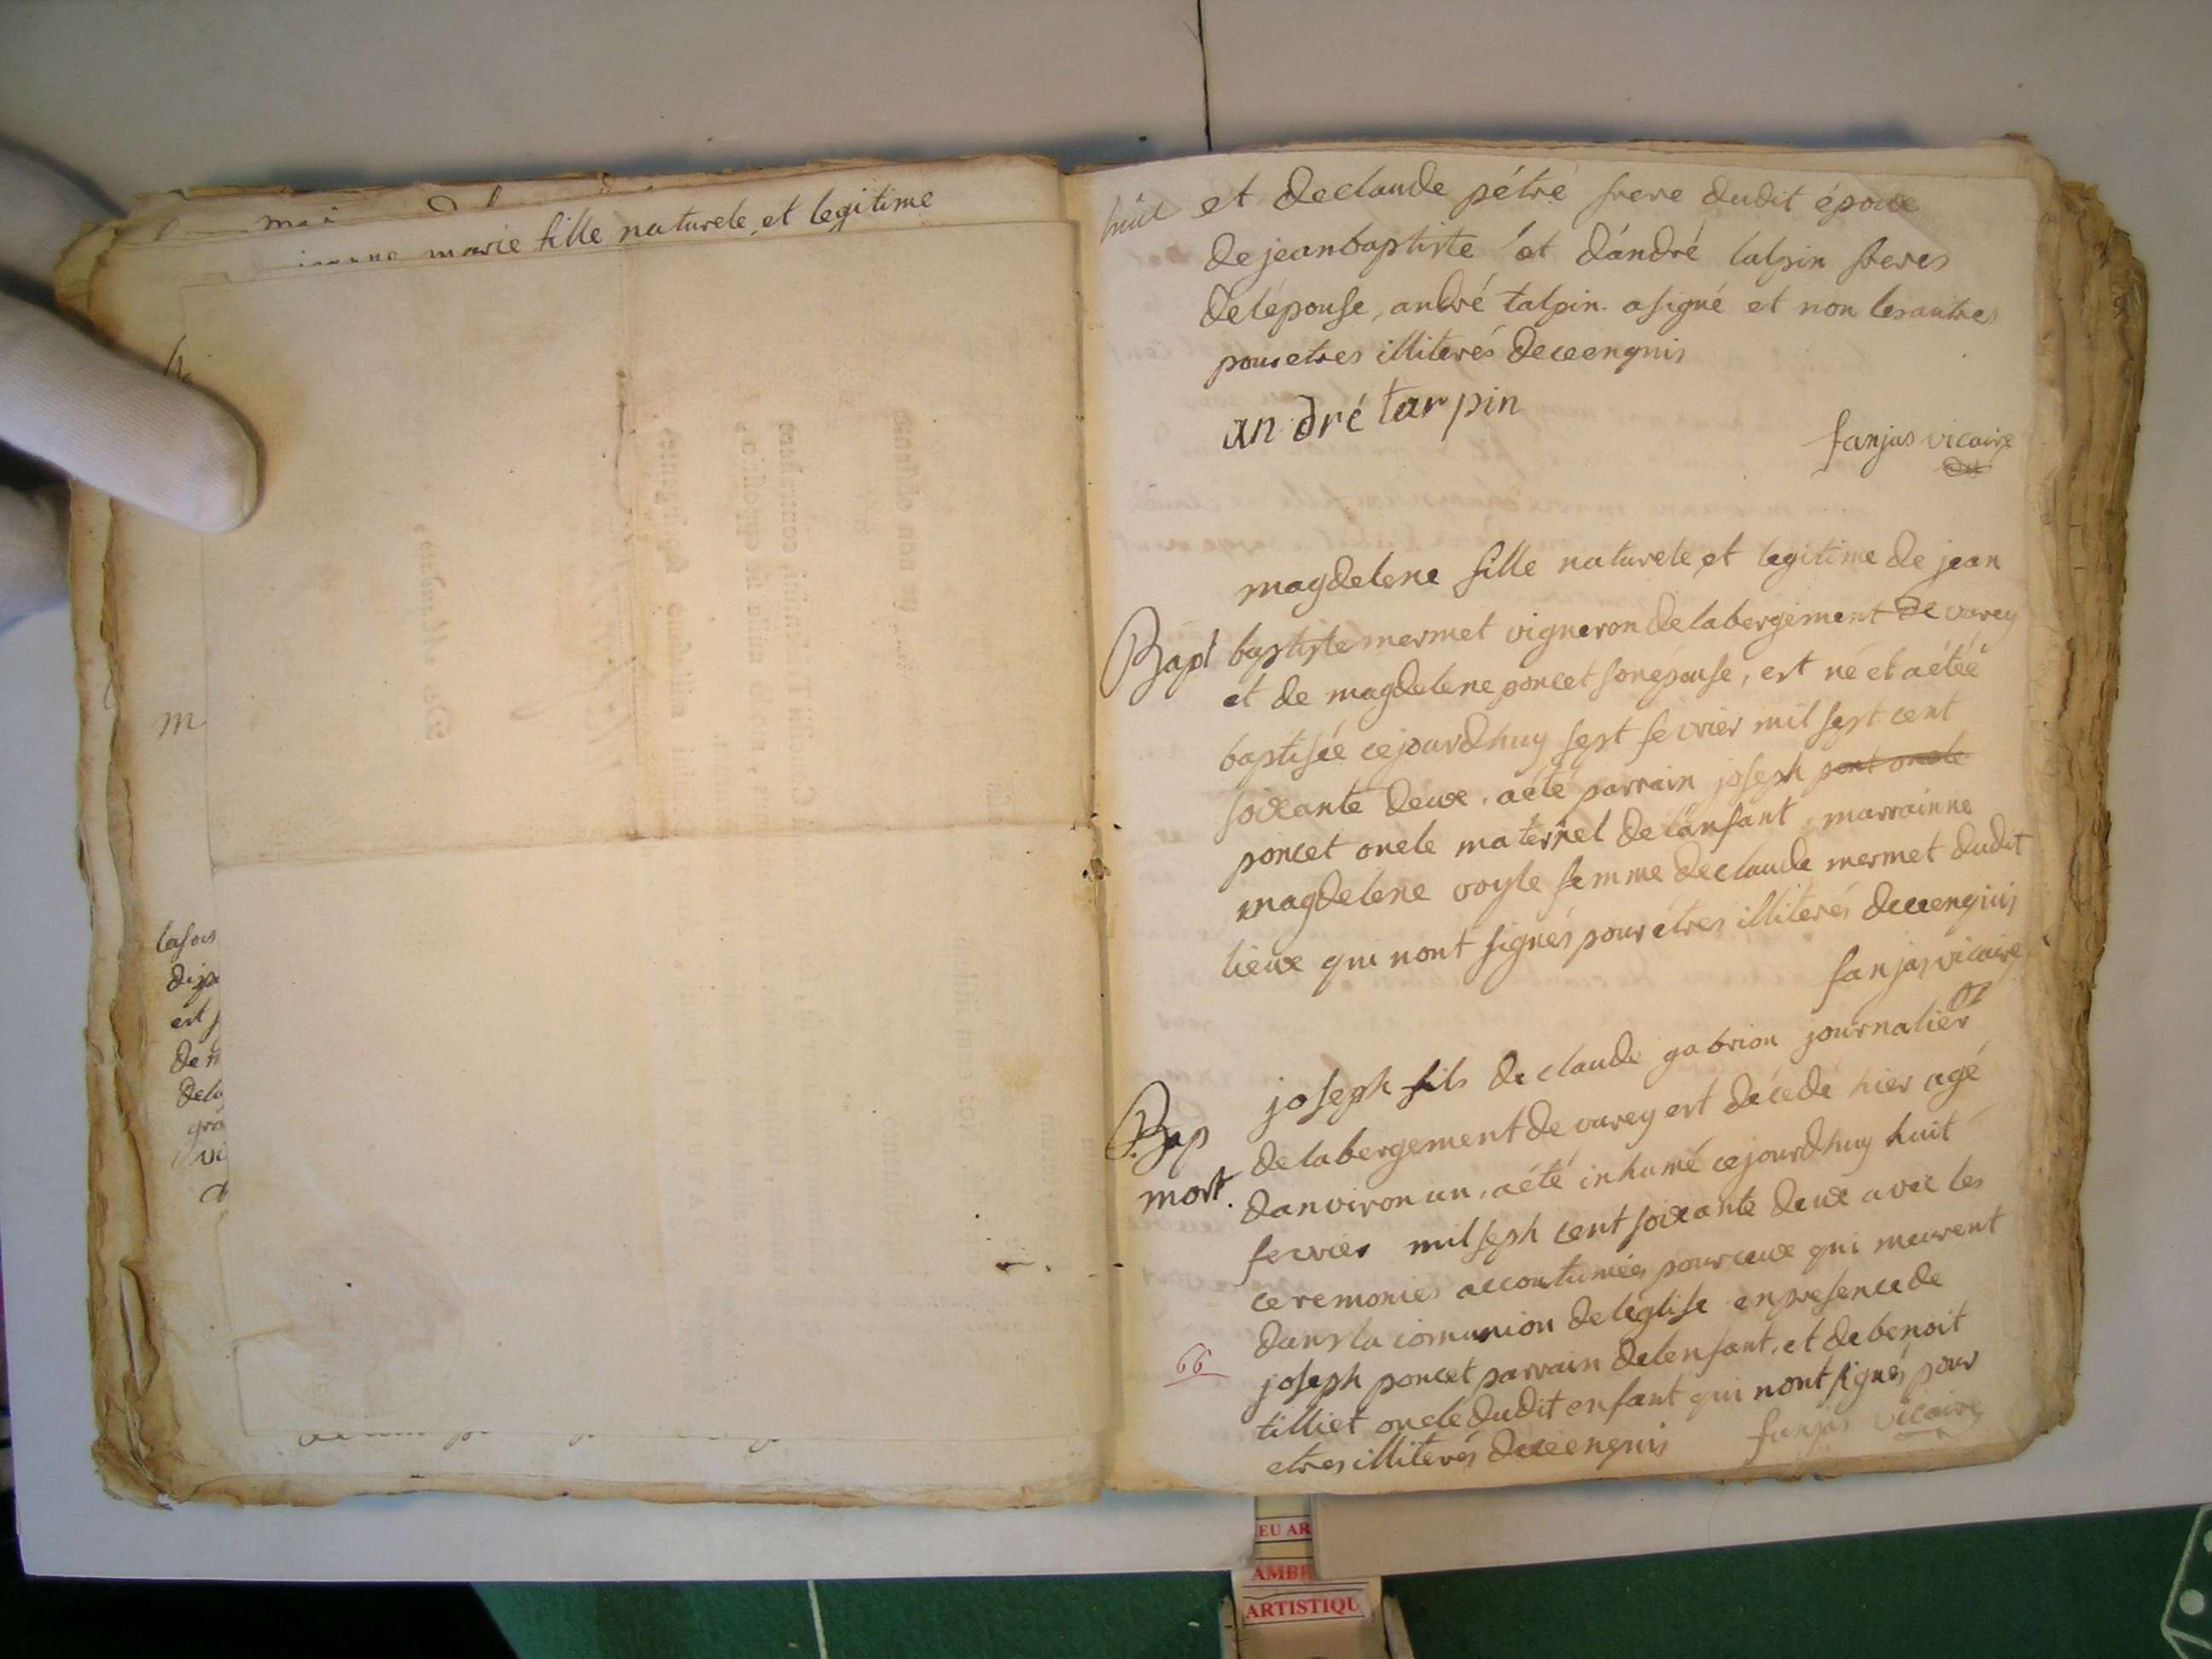 marie fille naturele et legitime
m
lasous
est
vi
huit
et de claude pétré frere dudit époux
de jeanbaptiste et d'andré talpin freres
de lépouse, andré talpin a signé et non lesautres
pour etres illiterés de ce enquis
andré tarpin
fanjas vicaire
magdelene fille naturele et legitime de jean
Bapt
baptiste mermet vigneron de labergement de varey
et de magdelene poncet son epouse, est né et a étéé
baptisée cejourdhuy sept fevrier mil sept cent
soixante deux, a été parrain joseph pont oncle
poncet oncle maternel de l'anfant, marrainne
magdelene voyle femme de claude mermet dudit
lieux qui nont signés pour étres illiterés de ce enquis
fanjas vicaire
joseph fils de claude gabrion journalier
Bap
mort.
de labergement de varey est décedé hier agé
d'anviron un, a été inhumé cejourdhuy huit
fevrier mil seph cent soixante deux avec les
ceremonies accoutumées pour ceux qui meurent
dans la comunion de léglise en presence de
66
joseph poncet parrain de lenfant, et de benoit
tilliet oncle dudit enfant qui nont signés pour
etres illiterés de ce enquis fanjas vicaire
EU AR
AMBE
ARTISTIQU